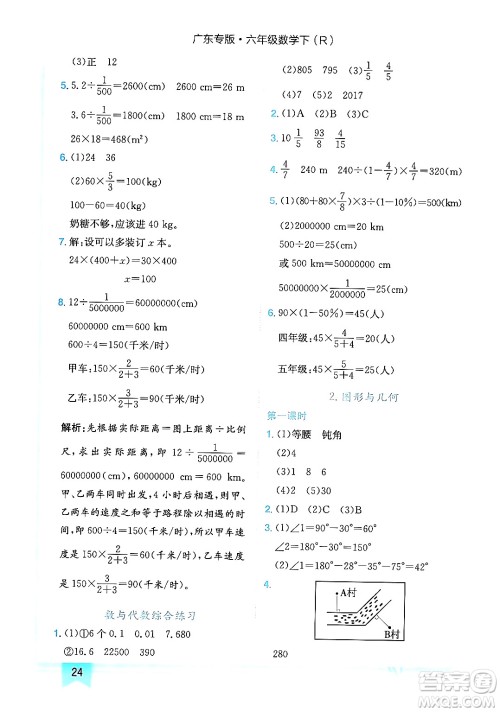 广东专版·六年级数学下(R)
(3)正 12
5. 5.2÷1/500=2600(cm) 2600 cm=26 m
3.6÷1/500=1800(cm) 1800 cm=18 m
26×18=468(m²)
6. (1)24 36
(2)60×5/3=100(kg)
100-60=40(kg)
奶糖不够,应该进 40 kg。
7. 解:设可以多装订 x 本。
24×(400+x)=30×400
x=100
8. 12÷1/5000000=60000000(cm)
60000000 cm=600 km
600÷4=150(千米/时)
甲车:150×2/(2+3)=60(千米/时)
乙车:150×3/(2+3)=90(千米/时)
解析:先根据实际距离=图上距离÷比例尺,
求出实际距离,即 12÷1/5000000=
60000000(cm),60000000 cm=600 km。
甲、乙两车同时出发,4 小时后相遇,则甲、
乙两车的速度之和等于路程除以相遇时
间,即 600÷4=150(千米/时),所以甲车速
度是 150×2/(2+3)=60(千米/时),乙车速度
是 150×3/(2+3)=90(千米/时)。
数与代数综合练习
1. (1)①6 个 0.1 0.01 7.680
②16.6 22500 390
24
(2)805 795 (3)1/5 4/5
(4)7 (5)2 2017
2. (1)A (2)B (3)C
3. 10 1/5 93/8 4/15
4. 4/7 240 m 240÷(1-4/7)×4/7=320(m)
5. (1)(80+80×7/8)×3÷(1-10%)=500(km)
(2)500 km=50000000 cm
500÷20=25(km)
50000000×1/2000000=25(cm)
6. 90×(1-50%)=45(本)
四年级:45×4/(5+4)=20(本)
五年级:45×5/(5+4)=25(本)
2.图形与几何
第一课时
1. (1)等腰 钝角
(2)4
(3)1 8 6
(4)30
2. (1)D (2)D (3)C (4)C
3. (1)∠1=90°-30°=60°
∠2=180°-28°-35°-75°=42°
(2)∠1=75°-30°=45°
4.
A村
B村
280